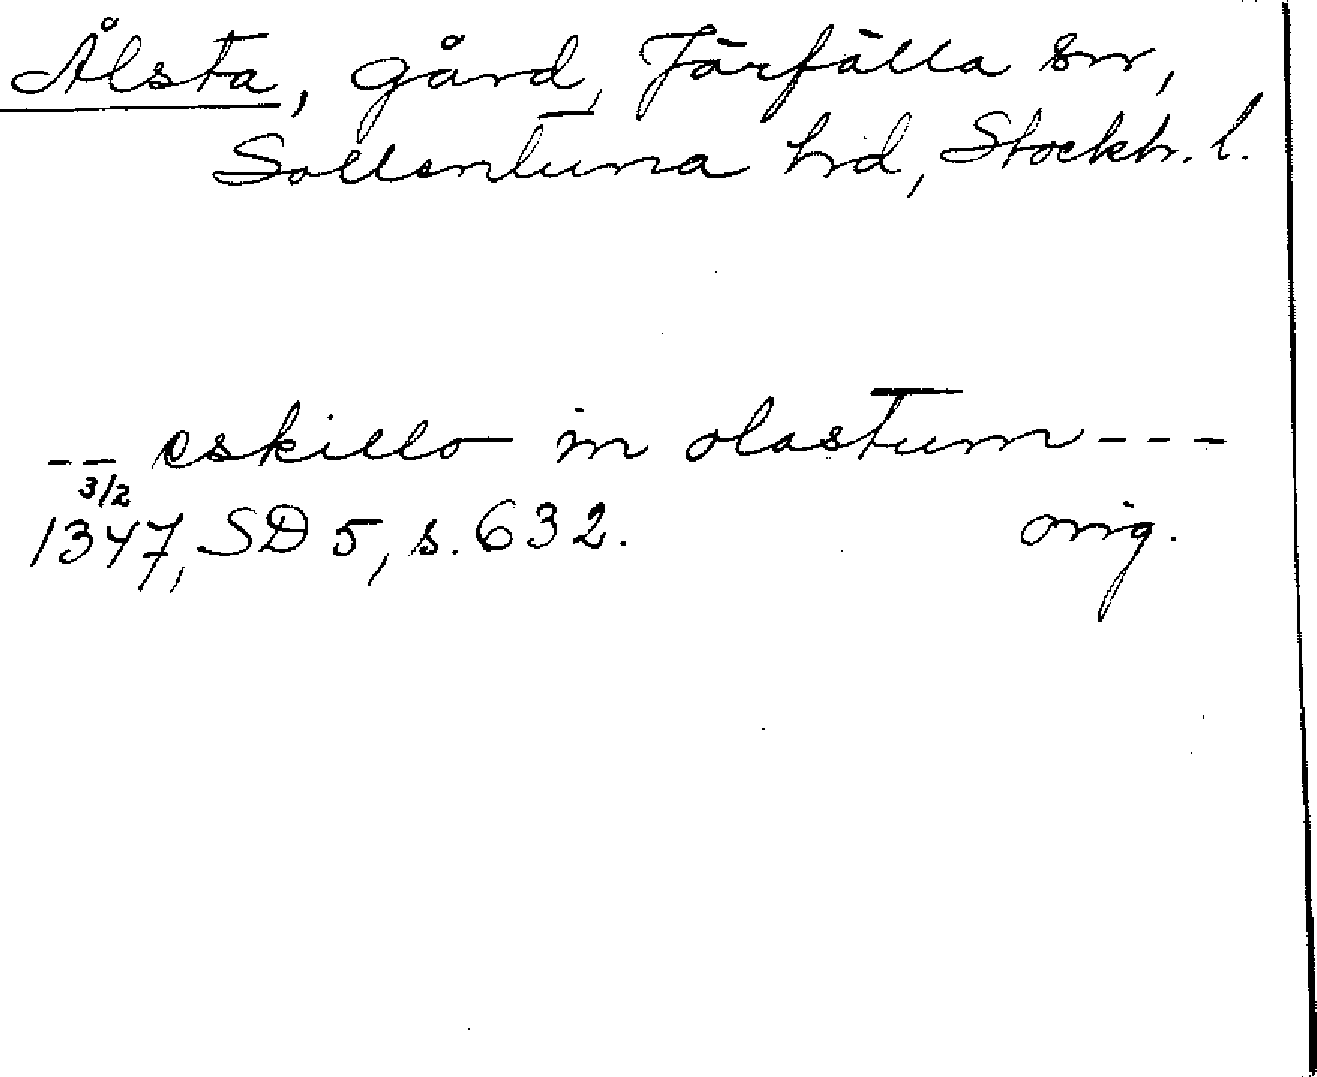 Ålsta, gård, Järfälla sn,
Sollentuna hd, Stockh. l.
-- eskillo in olastum ---
3/2
1347, SD 5, s. 632. orig.